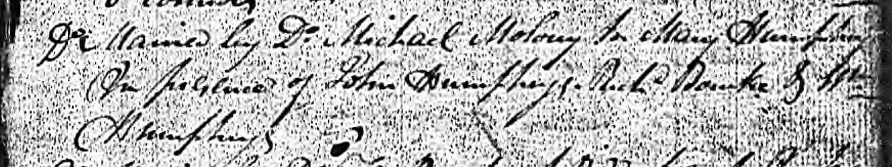 Do Married by Do Michael Molony to Mary Humphrys
In presence of John Humphrys. Richd Rourke & Wm
Humphrys